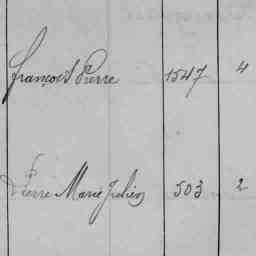 François Pierre 1547 4
Pierre Marie Julien 503 2